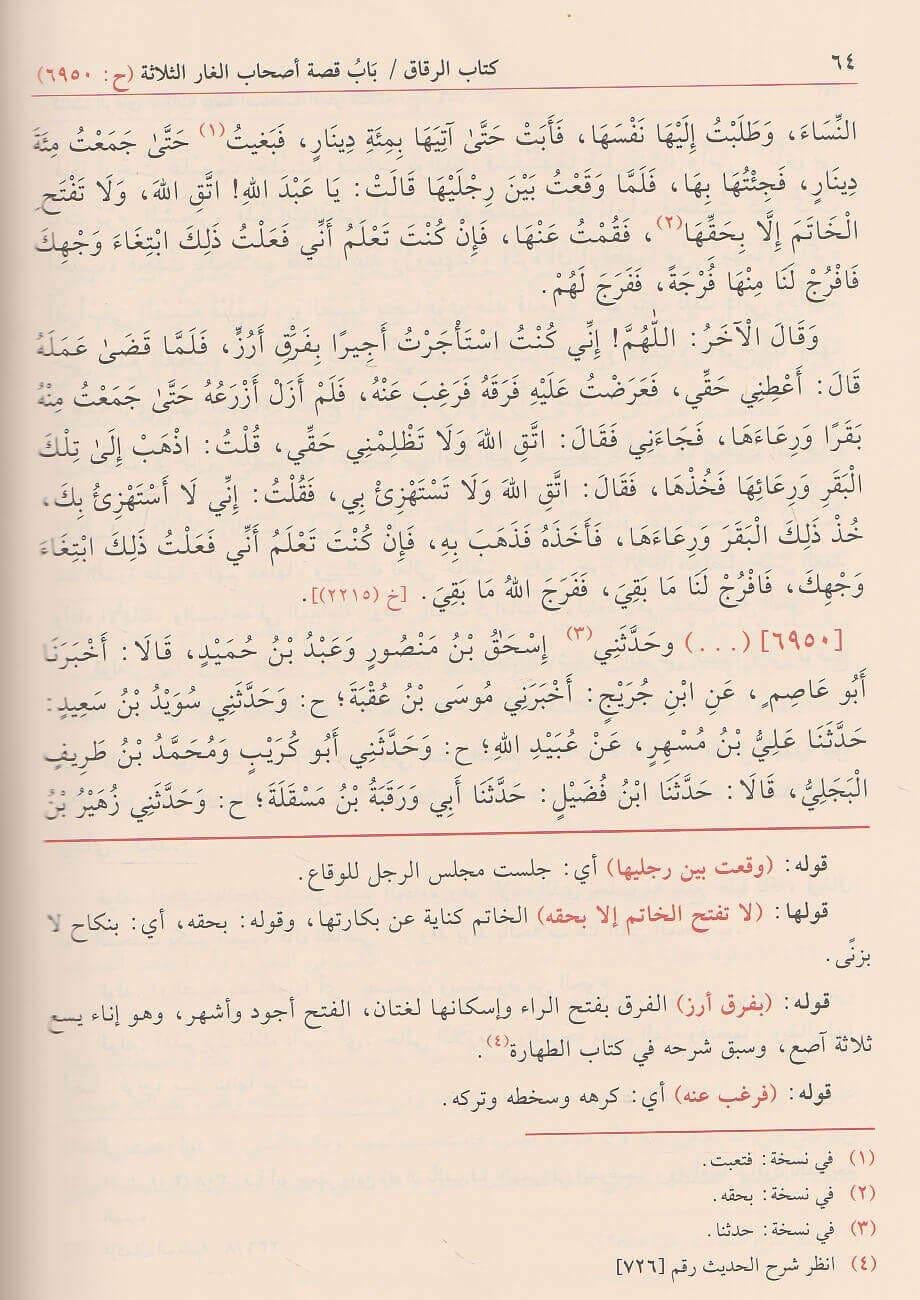 ٦٤
كتاب الرقاق / بَابُ قصة أصحاب الغار الثلاثة (ح: ٦٩٥٠)
النِّسَاءَ، وَطَلَبْتُ إِلَيْهَا نَفْسَهَا، فَأَبَتْ حَتَّىٰ آتِيَهَا بِمِئَةِ دِينَارٍ، فَبَغيتُ(١) حَتَّىٰ جَمَعْتُ مِئَةَ
دِينَارٍ، فَجِئْتُهَا بِهَا، فَلَمَّا وَقَعْتُ بَيْنَ رِجْلَيْهَا قَالَتْ: يَا عَبْدَ اللهِ! اتَّقِ اللهَ، وَلَا تَفْتَحِ
الْخَاتَمَ إِلَّا بِحَقِّهَا(٢)، فَقُمْتُ عَنْهَا، فَإِنْ كُنْتَ تَعْلَمُ أَنِّي فَعَلْتُ ذَلِكَ ابْتِغَاءَ وَجْهِكَ
فَافْرُجْ لَنَا مِنْهَا فُرْجَةً، فَفَرَجَ لَهُمْ.
وَقَالَ الْآخَرُ: اللّٰهُمَّ! إِنِّي كُنْتُ اسْتَأْجَرْتُ أَجِيرًا بِفَرَقِ أَرُزٍّ، فَلَمَّا قَضَىٰ عَمَلَهُ
قَالَ: أَعْطِنِي حَقِّي، فَعَرَضْتُ عَلَيْهِ فَرَقَهُ فَرَغِبَ عَنْهُ، فَلَمْ أَزَلْ أَزْرَعُهُ حَتَّىٰ جَمَعْتُ مِنْهُ
بَقَرًا وَرِعَاءَهَا، فَجَاءَنِي فَقَالَ: اتَّقِ اللهَ وَلَا تَظْلِمْنِي حَقِّي، قُلْتُ: اذْهَبْ إِلَىٰ تِلْكَ
الْبَقَرِ وَرِعَائِهَا فَخُذْهَا، فَقَالَ: اتَّقِ اللهَ وَلَا تَسْتَهْزِئْ بِي، فَقُلْتُ: إِنِّي لَا أَسْتَهْزِئُ بِكَ،
خُذْ ذَلِكَ الْبَقَرَ وَرِعَاءَهَا، فَأَخَذَهُ فَذَهَبَ بِهِ، فَإِنْ كُنْتَ تَعْلَمُ أَنِّي فَعَلْتُ ذَلِكَ ابْتِغَاءَ
وَجْهِكَ، فَافْرُجْ لَنَا مَا بَقِيَ، فَفَرَجَ اللهُ مَا بَقِيَ. [خ (٢٢١٥)].
[٦٩٥٠] (...) وحَدَّثَنِي(٣) إِسْحَقُ بْنُ مَنْصُورٍ وَعَبْدُ بْنُ حُمَيْدٍ، قَالَا: أَخْبَرَنَا
أَبُو عَاصِمٍ، عَنِ ابْنِ جُرَيْجٍ: أَخْبَرَنِي مُوسَى بْنُ عُقْبَةَ؛ ح: وَحَدَّثَنِي سُوَيْدُ بْنُ سَعِيدٍ:
حَدَّثَنَا عَلِيُّ بْنُ مُسْهِرٍ، عَنْ عُبَيْدِ اللهِ؛ ح: وَحَدَّثَنِي أَبُو كُرَيْبٍ وَمُحَمَّدُ بْنُ طَرِيفٍ
الْبَجَلِيُّ، قَالَا: حَدَّثَنَا ابْنُ فُضَيْلٍ: حَدَّثَنَا أَبِي وَرَقَبَةُ بْنُ مَسْقَلَةَ؛ ح: وَحَدَّثَنِي زُهَيْرُ بْنُ
قوله: (وقعت بين رجليها) أي: جلست مجلس الرجل للوقاع.
قولها: (لا تفتح الخاتم إلا بحقه) الخاتم كناية عن بكارتها، وقوله: بحقه، أي: بنكاح لا
بزنًى.
قوله: (بفرق أرز) الفرق بفتح الراء وإسكانها لغتان، الفتح أجود وأشهر، وهو إناء يسع
ثلاثة آصع، وسبق شرحه في كتاب الطهارة(٤).
قوله: (فرغب عنه) أي: كرهه وسخطه وتركه.
(١) في نسخة: فتعبت.
(٢) في نسخة: بحقه.
(٣) في نسخة: حدثنا.
(٤) انظر شرح الحديث رقم [٧٢٦]